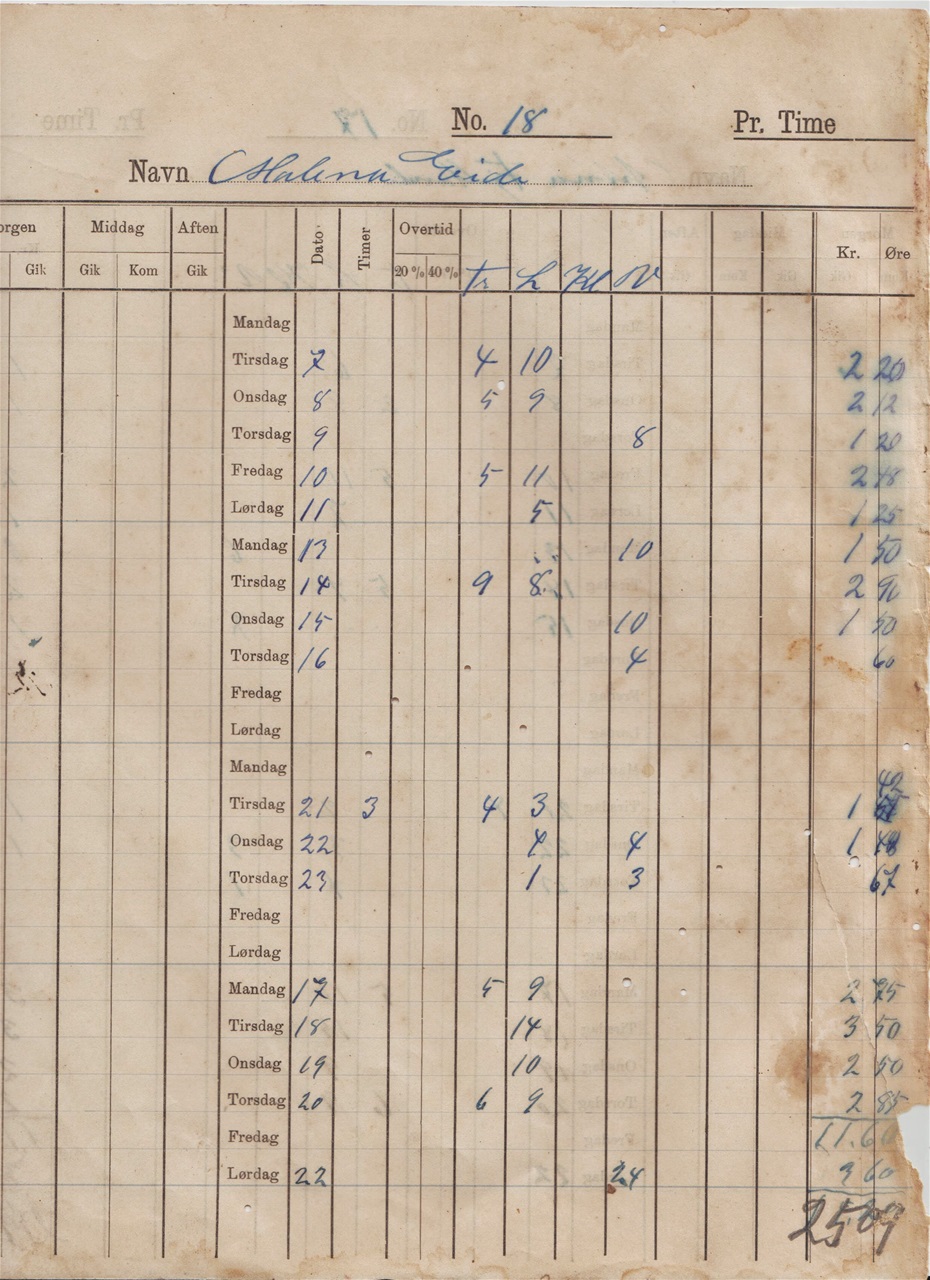 No. 18 Pr. Time
Navn Malena Eide
orgen Middag Aften Dato Timer Overtid Kr. Øre
Gik Gik Kom Gik 20 % 40 % Tr L Kl V
Mandag
Tirsdag 7 4 10 2 20
Onsdag 8 5 9 2 12
Torsdag 9 8 1 20
Fredag 10 5 11 2 48
Lørdag 11 5 1 25
Mandag 13 10 1 50
Tirsdag 14 9 8 2 90
Onsdag 15 10 1 50
Torsdag 16 4 60
Fredag
Lørdag
Mandag
42
Tirsdag 21 3 4 3 1
Onsdag 22 4 4 1 48
Torsdag 23 1 3 67
Fredag
Lørdag
Mandag 17 5 9 2 75
Tirsdag 18 14 3 50
Onsdag 19 10 2 50
Torsdag 20 6 9 2 85
Fredag 11.60
Lørdag 22 24 3 60
2509